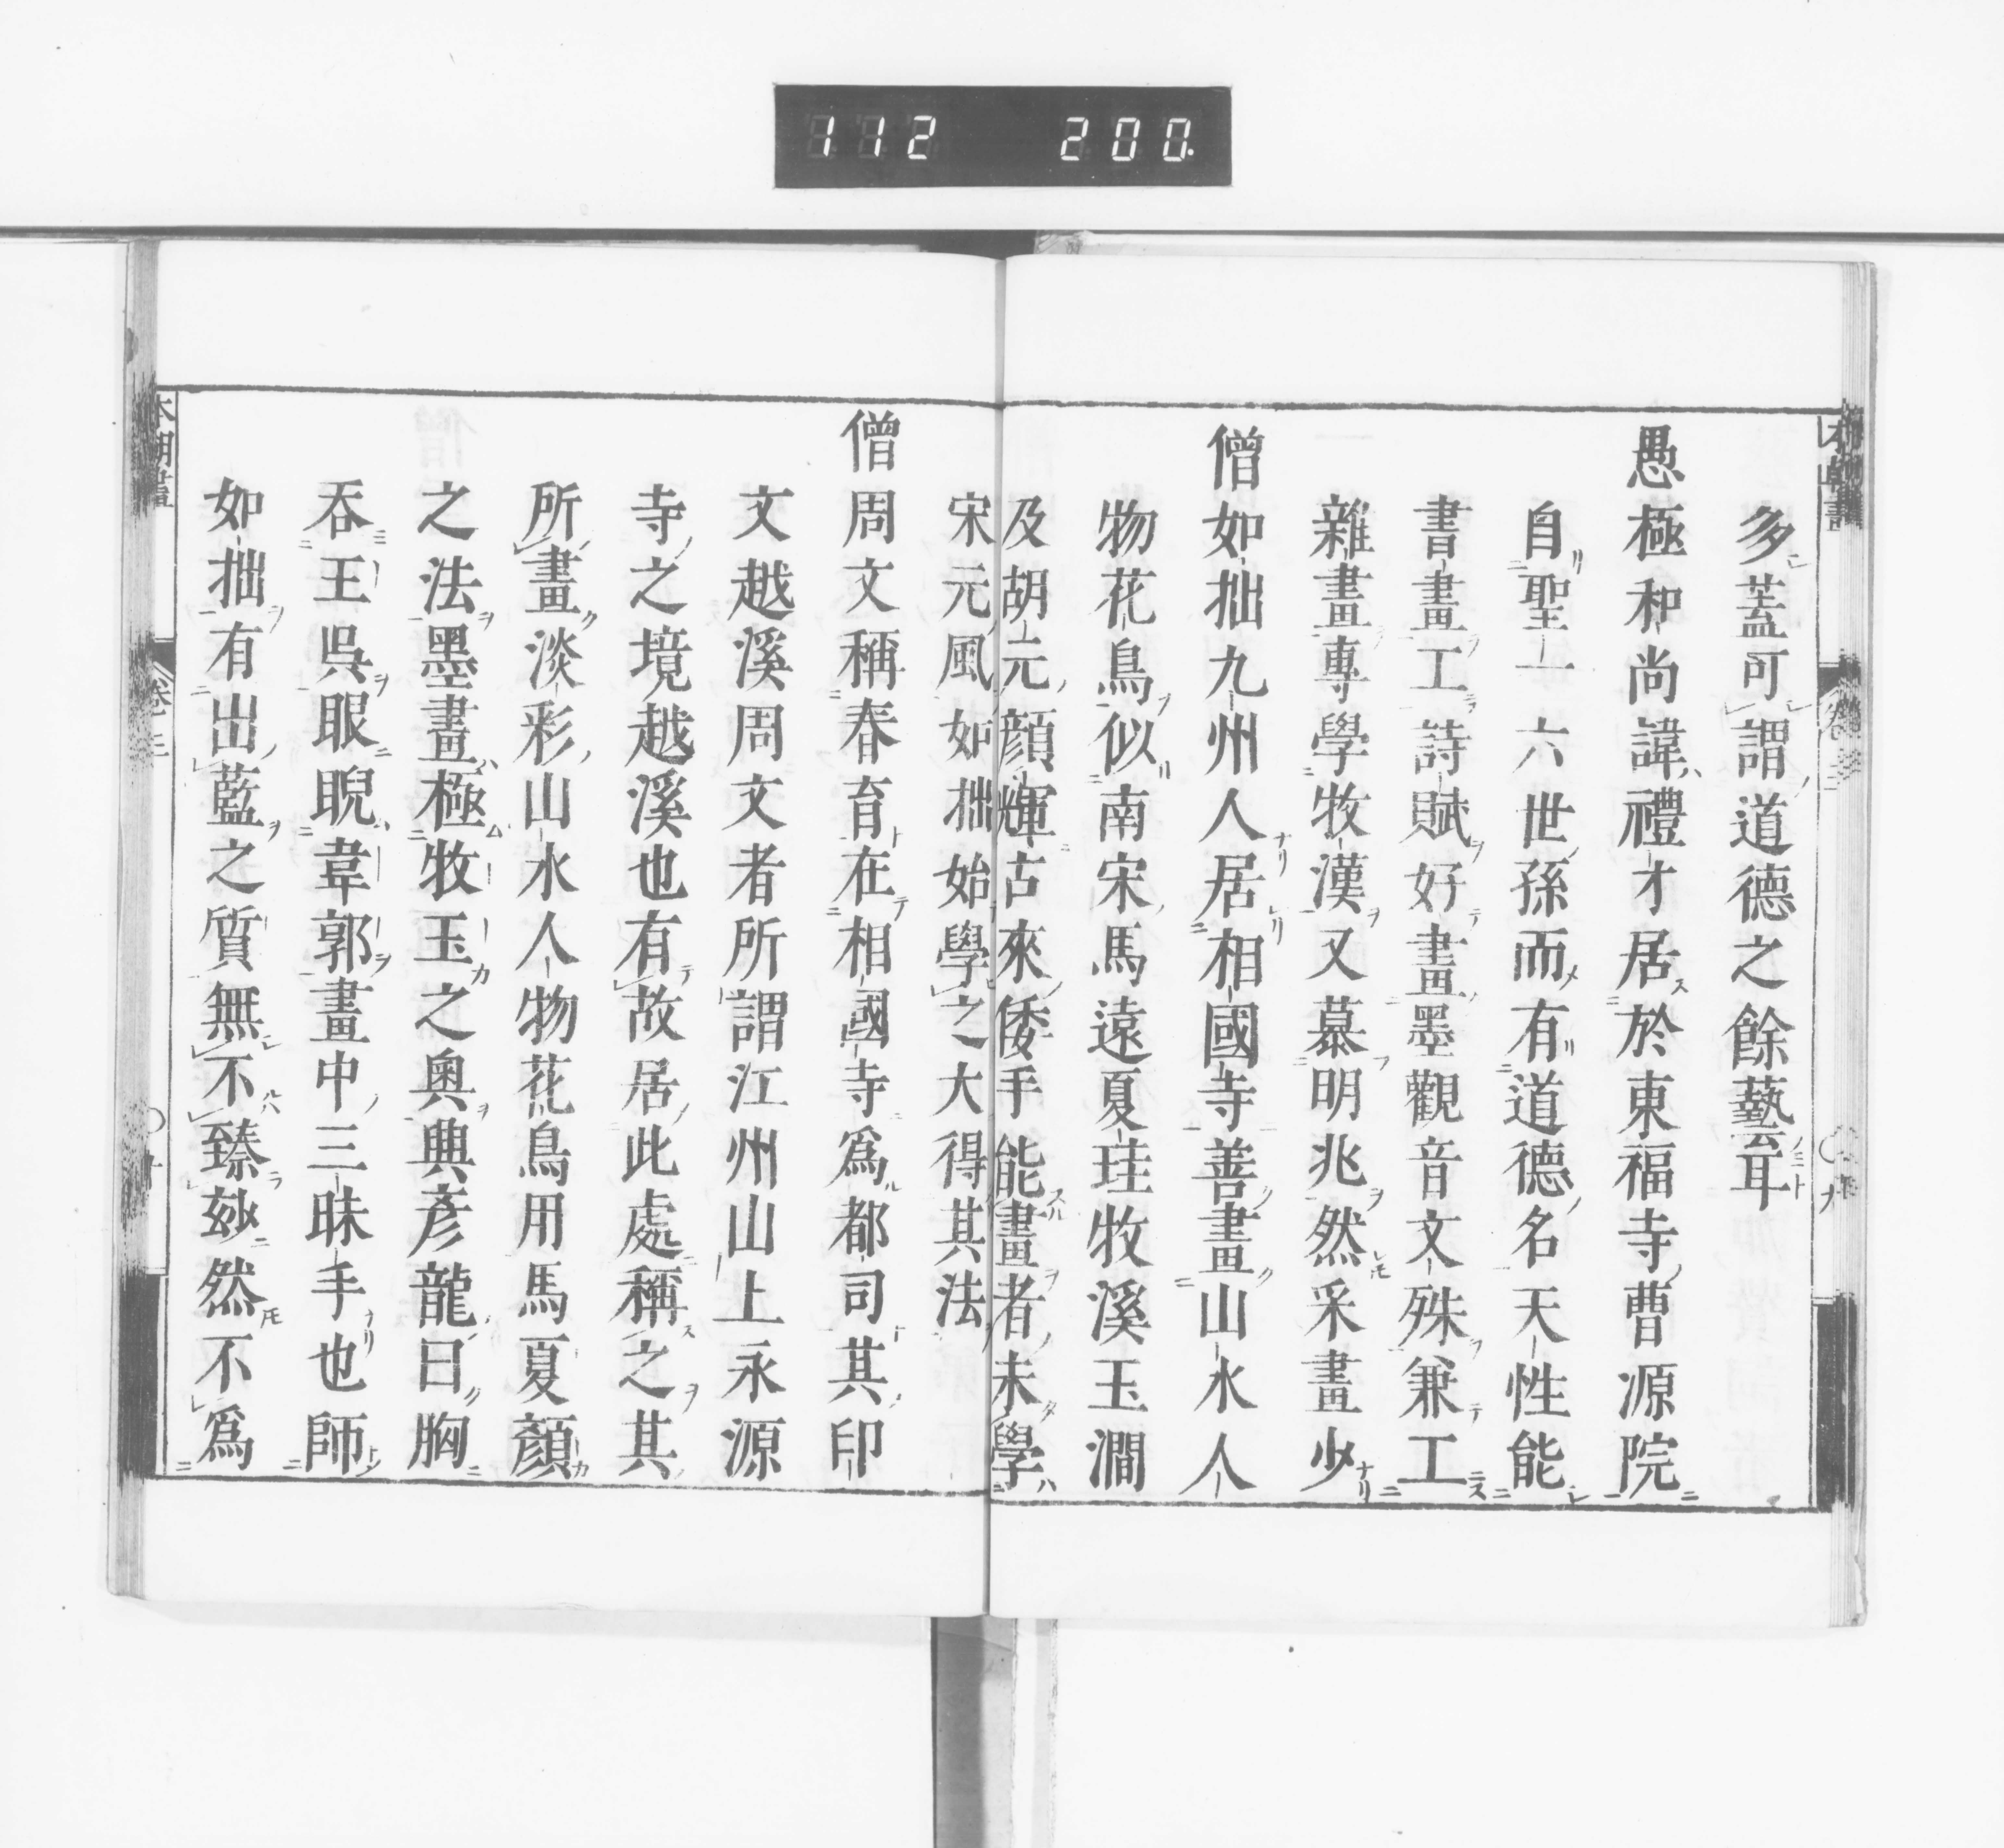 112 200.
多蓋可謂道德之餘藝耳
愚極和尚諱禮才居於東福寺曹源院
自聖一六世孫而有道德名天性能
書畫工詩賦好畫墨觀音文殊兼工
雜畫專學牧漢又慕明兆然采畫少
僧如拙九州人居相國寺善畫山水人
物花鳥似南宋馬遠夏珪牧溪玉澗
及胡元顔輝古來倭手能畫者未學
宋元風如拙始學之大得其法
僧周文稱春育在相國寺爲都司其印
文越溪周文者所謂江州山上永源
寺之境越溪也有故居此處稱之其
所畫淡彩山水人物花鳥用馬夏顔
之法墨畫極牧玉之奥典彦龍曰胸
吞二王吳眼睨韋郭畫中三昧手也師
如拙有出藍之質無不臻玅然不爲
本朝畫 卷三